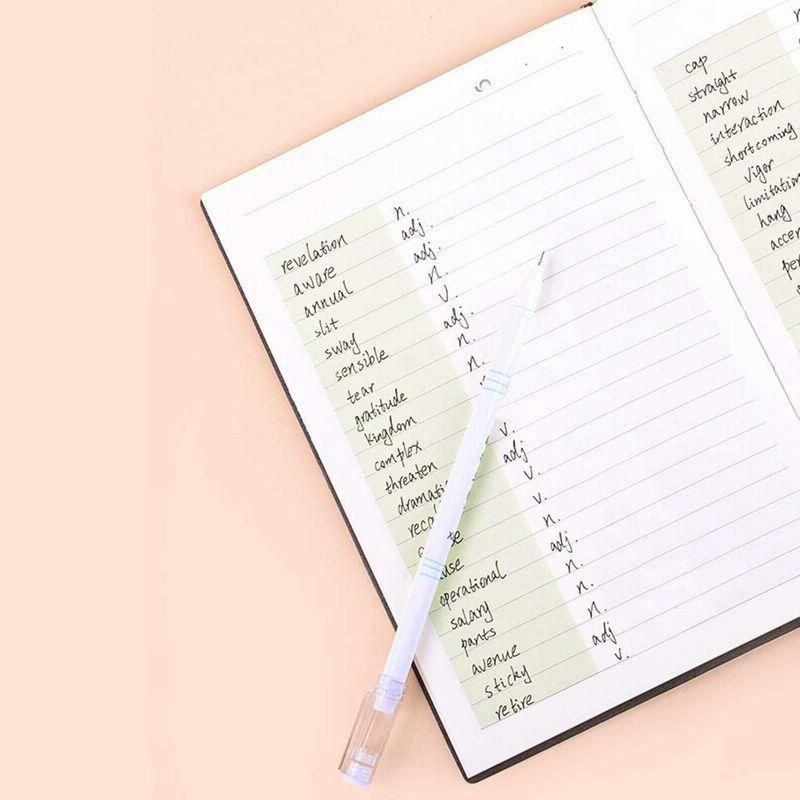 revelation n.
aware adj.
annual adj.
slit n.
sway v.
sensible adj.
tear n.
gratitude n.
kingdom
complex
threaten v.
adj
v.
v.
n.
operational adj.
salary n.
pants n.
avenue n.
sticky adj
retire v.
cap
straight
narrow
interaction
shortcoming
vigor
limitation
hang